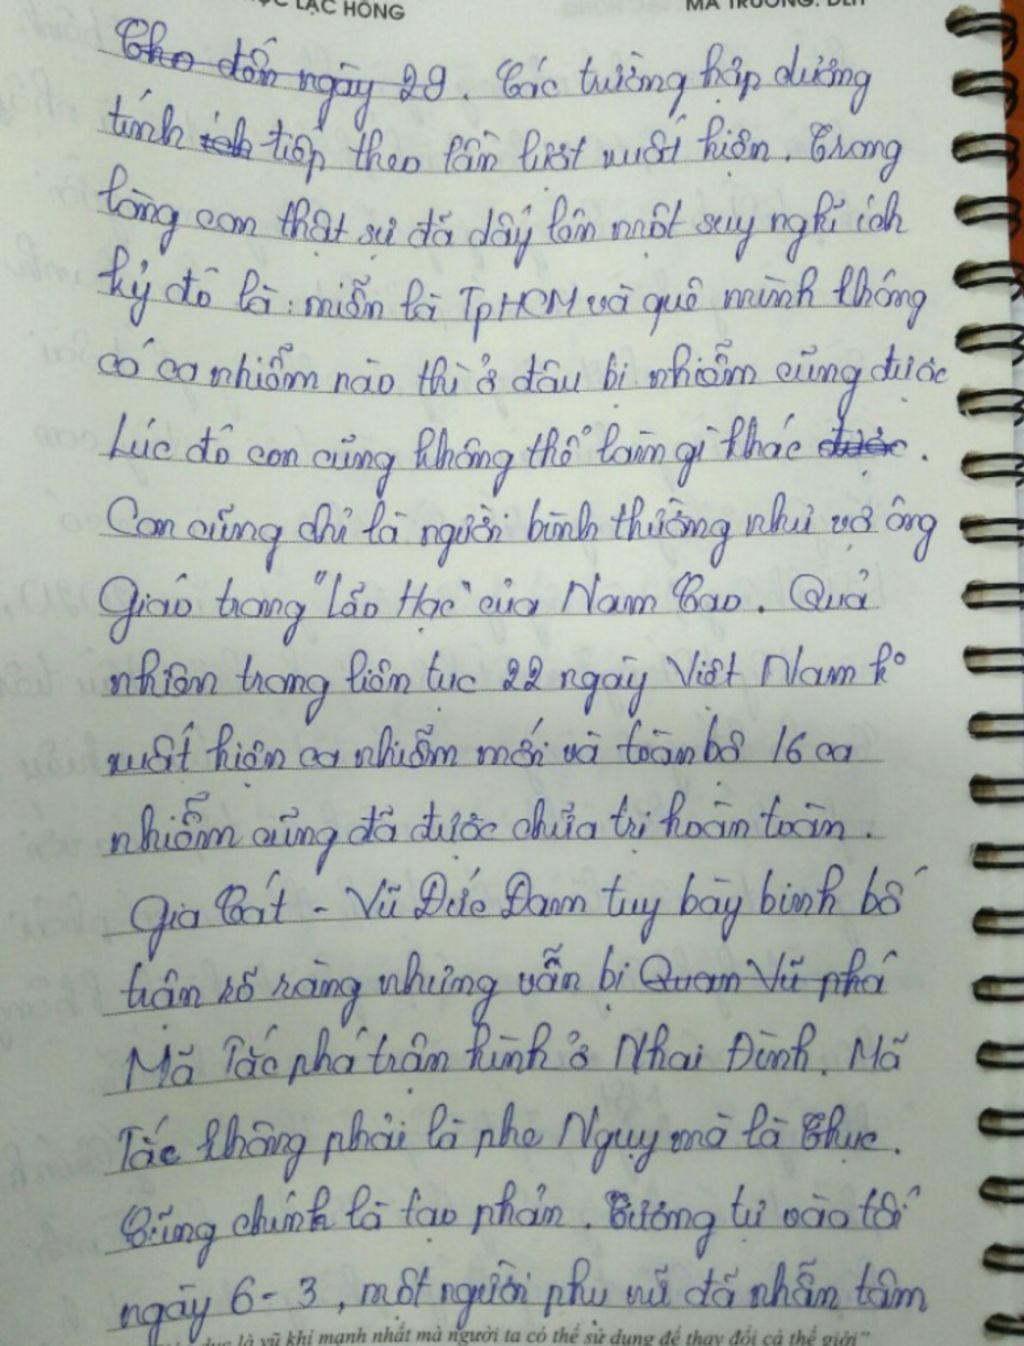 LẠC HỒNG
MÃ TRƯỜNG: DLH
Cho đến ngày 29. Các trường hợp dương
tính ích tiếp theo lần lượt xuất hiện. Trong
lòng con thật sự đã dấy lên một suy nghĩ ích
kỷ đó là: miễn là TpHCM và quê mình không
có ca nhiễm nào thì ở đâu bị nhiễm cũng được
Lúc đó con cũng không thể làm gì khác được.
Con cũng chỉ là người bình thường như vợ ông
Giáo trong "Lão Hạc" của Nam Cao. Quả
nhiên trong liên tục 22 ngày Việt Nam ko
xuất hiện ca nhiễm mới và toàn bộ 16 ca
nhiễm cũng đã được chữa trị hoàn toàn.
Gia Cát - Vũ Đức Đam tuy bày binh bố
trận rõ ràng nhưng vẫn bị Quan Vũ phá
Mã Tắc phá trận hình ở Nhai Đình. Mã
Tắc không phải là phe Ngụy mà là Thục.
Cũng chính là tạo phản. Tương tự vào tối
ngày 6-3, một người phụ nữ đã nhẫn tâm
dục là vũ khí mạnh nhất mà người ta có thể sử dụng để thay đổi cả thế giới"